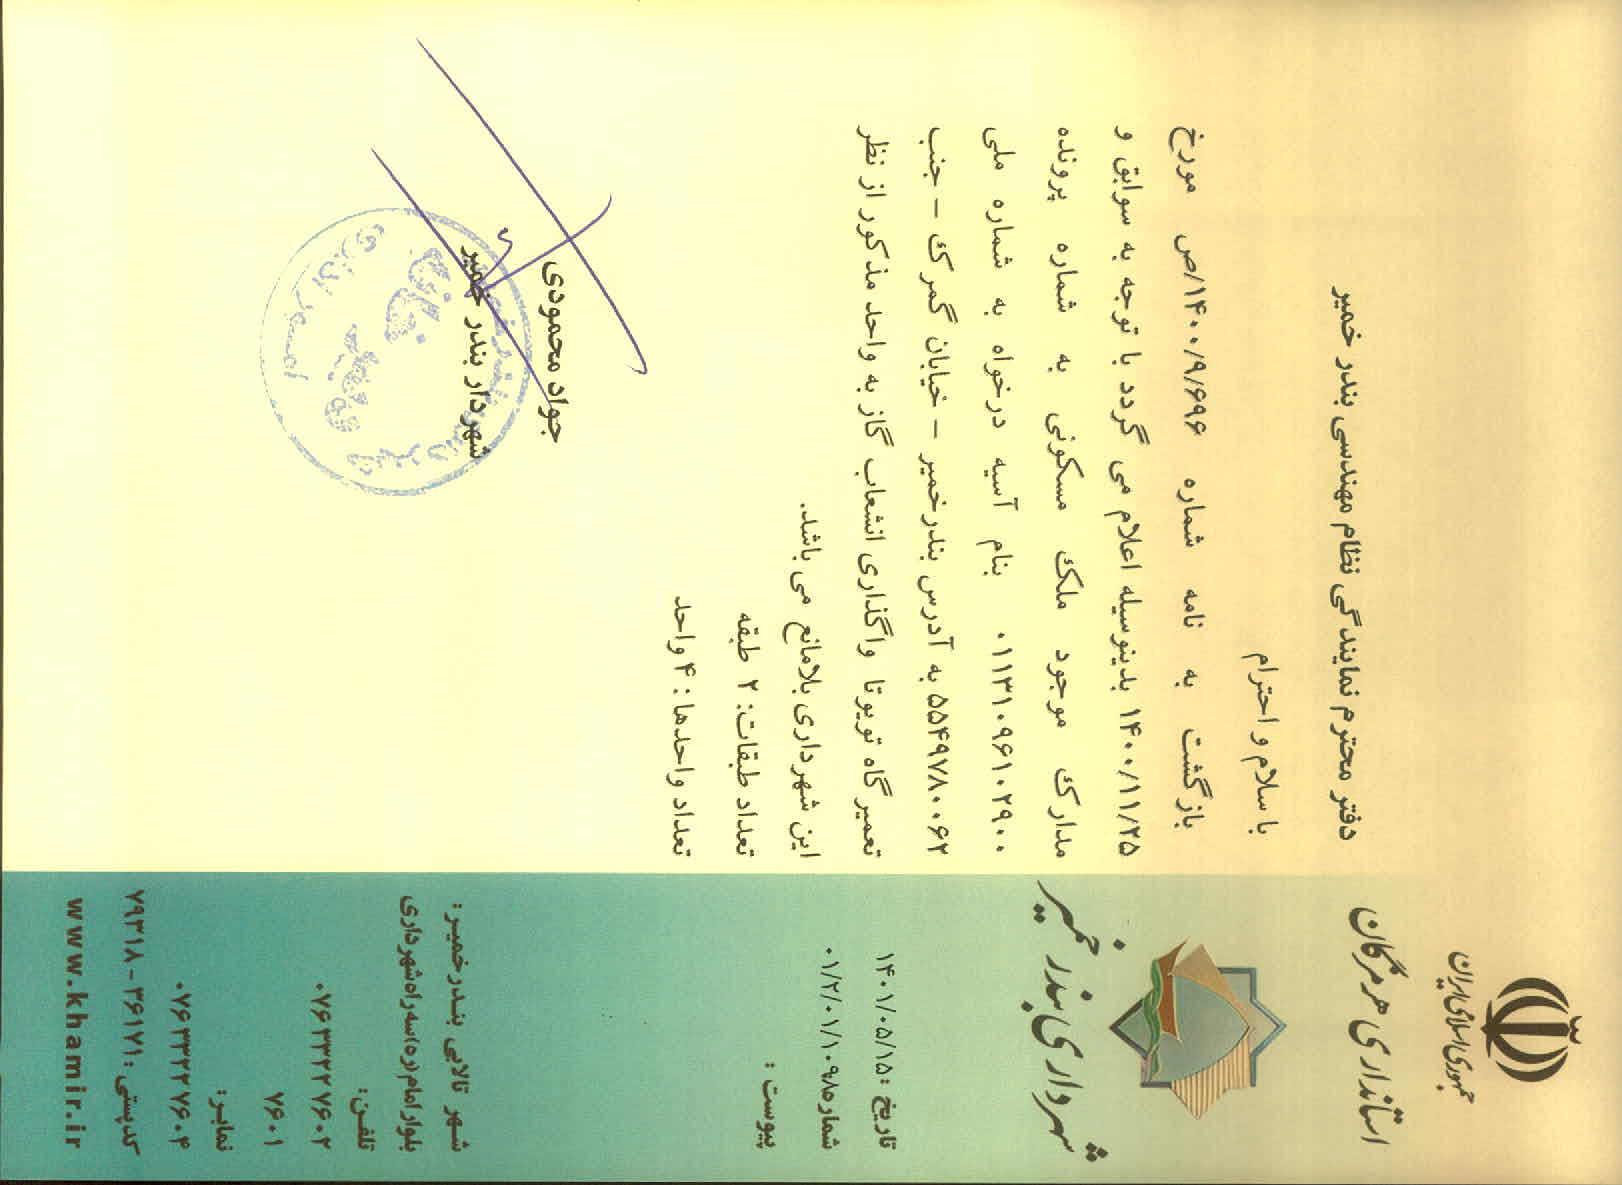 جمهوری اسلامی ایران
استانداری هرمزگان
شهرداری بندر خمیر
تاریخ : ۱۴۰۱/۰۵/۱۵
شماره ۰۱/۲/۰۱/۱۰۹۸
پیوست :
دفتر محترم نمایندگی نظام مهندسی بندر خمیر
با سلام و احترام
بازگشت به نامه شماره ۱۴۰۰/۹/۶۹۶/ص مورخ
۱۴۰۰/۱۱/۲۵ بدینوسیله اعلام می گردد با توجه به سوابق و
مدارک موجود ملک مسکونی به شماره پرونده
۰۱۱۳۱۰۹۶۱۰۲۹۰۰ بنام آسیه درخواه به شماره ملی
۵۵۴۹۷۸۰۰۶۲ به آدرس بندرخمیر – خیابان گمرک – جنب
تعمیرگاه تویوتا واگذاری انشعاب گاز به واحد مذکور از نظر
این شهرداری بلامانع می باشد.
تعداد طبقات: ۲ طبقه
تعداد واحدها : ۴ واحد
جواد محمودی
شهردار بندر خمیر
شهر تالابی بندرخمیـر :
بلوار امام(ره)سه راه شهرداری
تلفـن:
۰۷۶۳۳۲۲۷۶۰۲
۷۶۰۱
نمابـر:
۰۷۶۳۳۲۲۷۶۰۴
کدپستی : ۳۶۱۷۱ - ۷۹۳۱۸
www.khamir.ir